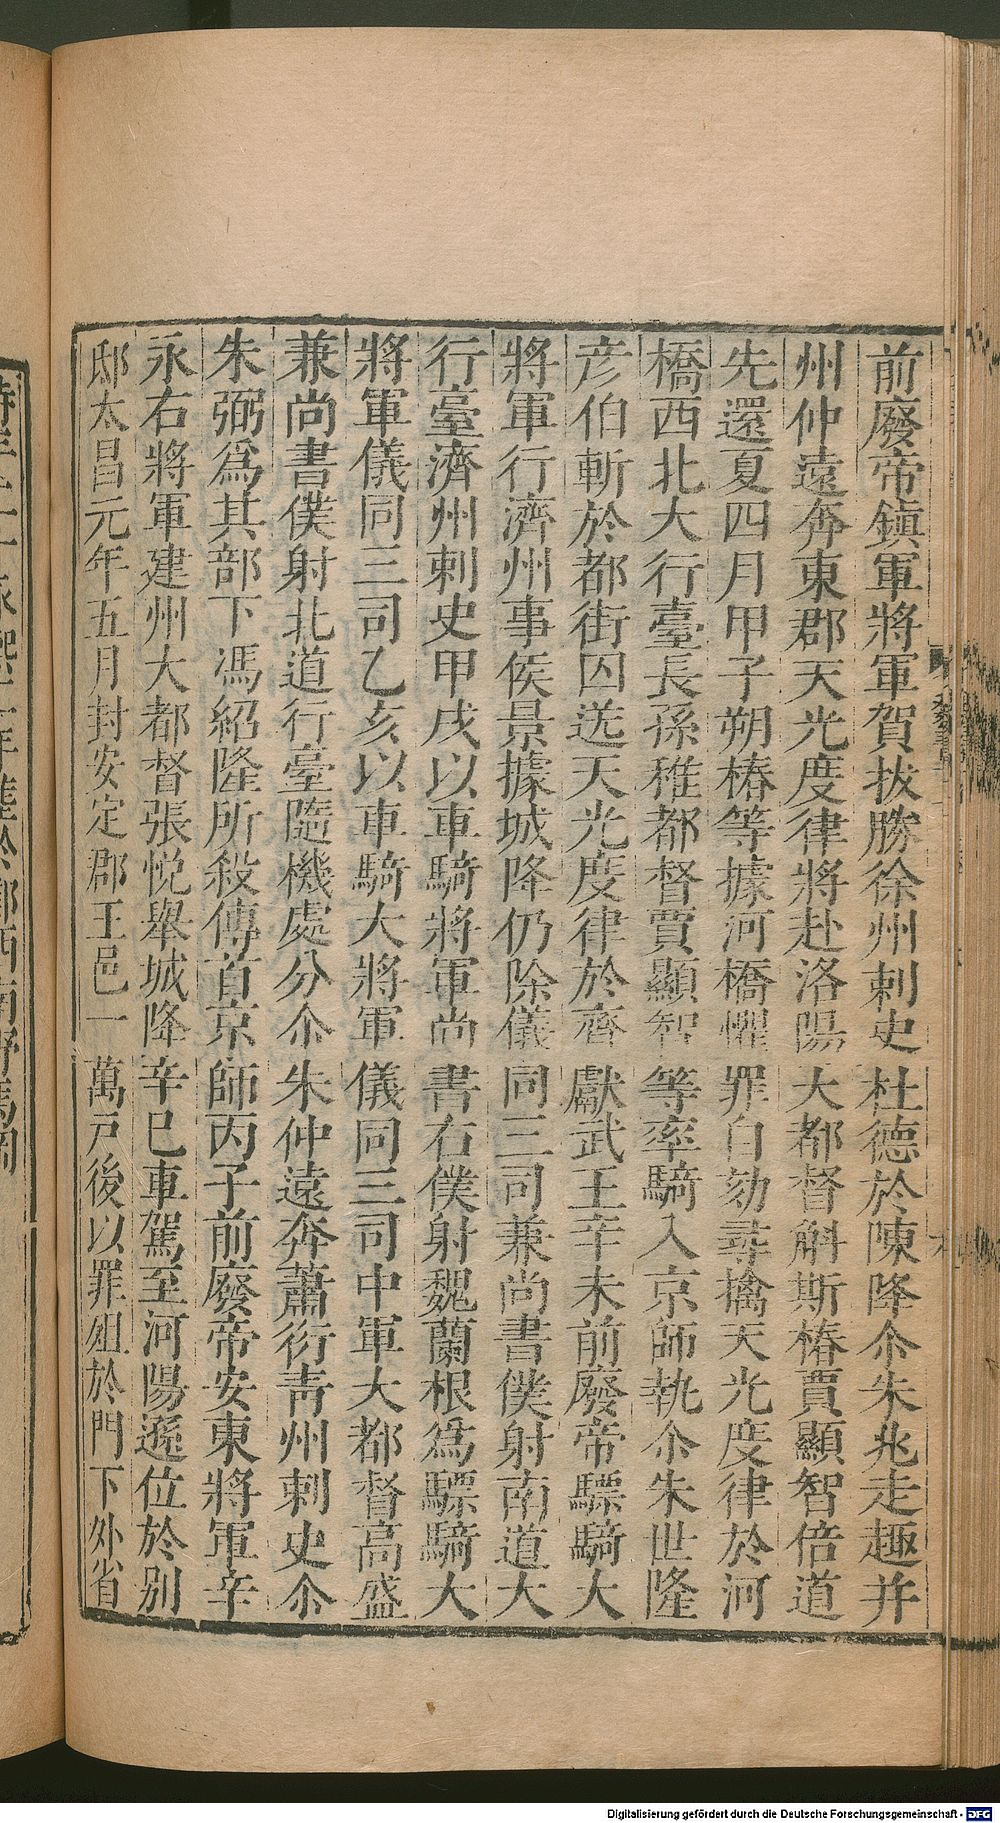 前廢帝鎭軍將軍賀拔勝徐州刺史杜德於陳降尒朱兆走趣并
州仲遠奔東郡天光度律將赴洛陽大都督斛斯椿賈顯智倍道
先還夏四月甲子朔椿等據河橋懼罪自劾尋擒天光度律於河
橋西北大行臺長孫稚都督賈顯智等率騎入京師執尒朱世隆
彦伯斬於都街囚送天光度律於齊獻武王辛未前廢帝驃騎大
將軍行濟州事侯景據城降仍除儀同三司兼尚書僕射南道大
行臺濟州刺史甲戌以車騎將軍尚書右僕射魏蘭根爲驃騎大
將軍儀同三司乙亥以車騎大將軍儀同三司中軍大都督高盛
兼尚書僕射北道行臺隨機處分尒朱仲遠奔蕭衍靑州刺史尒
朱弼爲其部下馮紹隆所殺傳首京師丙子前廢帝安東將軍辛
永右將軍建州大都督張悅舉城降辛巳車駕至河陽遜位於别
邸太昌元年五月封安定郡王邑一萬戸後以罪殂於門下外省
Digitalisierung gefördert durch die Deutsche Forschungsgemeinschaft - DFG